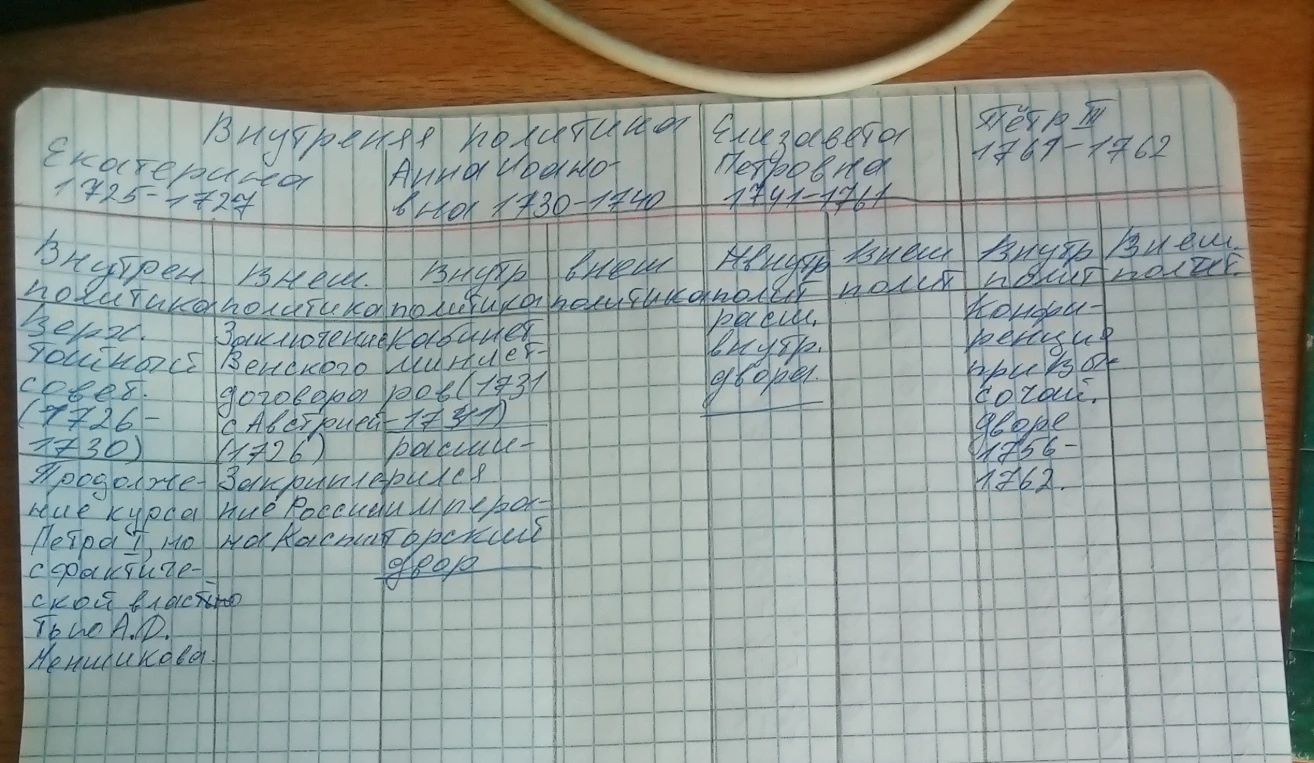 Внутреняя политика
Екатерина
1725-1727
Анна Иоано-
вна 1730-1740
Елизавета
Петровна
1741-1761
Пётр III
1761-1762
Внутрен
политика
Внеш.
политика
Внутр
политика
внеш
политика
внутр
полит
Внеш
полит
Внутр
полит
Внеш.
полит.
Верх.
тайный
совет.
(1726-
1730)
Продолже-
ние курса
Петра I, но
с фактиче-
ской власт
тью А.Д.
Меншикова.
Заключение
Венского
договора
с Австрией
(1726)
Закрипле
ние России
на Каспи
кабинет
минист-
ров (1731
-1741)
расши-
рился
импера-
торский
двор
расш.
внутр.
двора.
Конфи-
ренция
при Вы-
сочай.
дворе
1756-
1762.